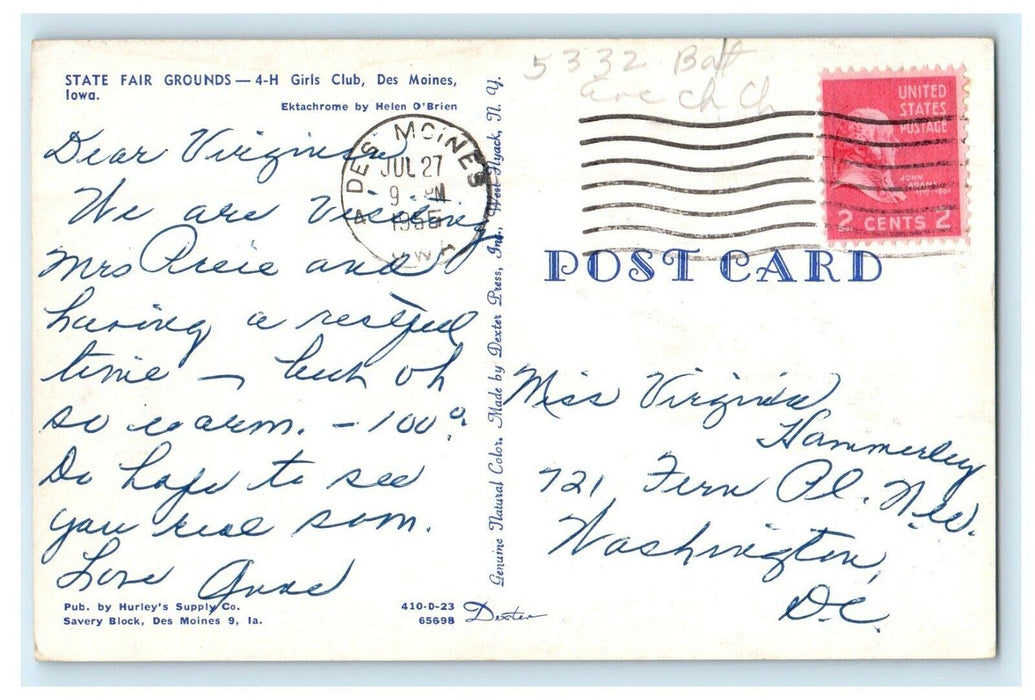 STATE FAIR GROUNDS — 4-H Girls Club, Des Moines,
Iowa.
Ektachrome by Helen O'Brien
Dear Virginia
We are visiting
Mrs and
having a restful
time — but oh
so warm. - 100°.
Do hope to see
you real soon.
Love Anne
Pub. by Hurley's Supply Co.
Savery Block, Des Moines 9, Ia.
410-D-23
65698
Dexter
Genuine Natural Color. Made by Dexter Press, Inc., West Nyack, N. Y.
DES MOINES
JUL 27
9 - PM
IOWA
5332 Bat
ave Ch Ch
UNITED
STATES
POSTAGE
JOHN
ADAMS
2 CENTS 2
POST CARD
Miss Virginia
Hammerley
721 Fern Pl. N.W.
Washington,
D.C.